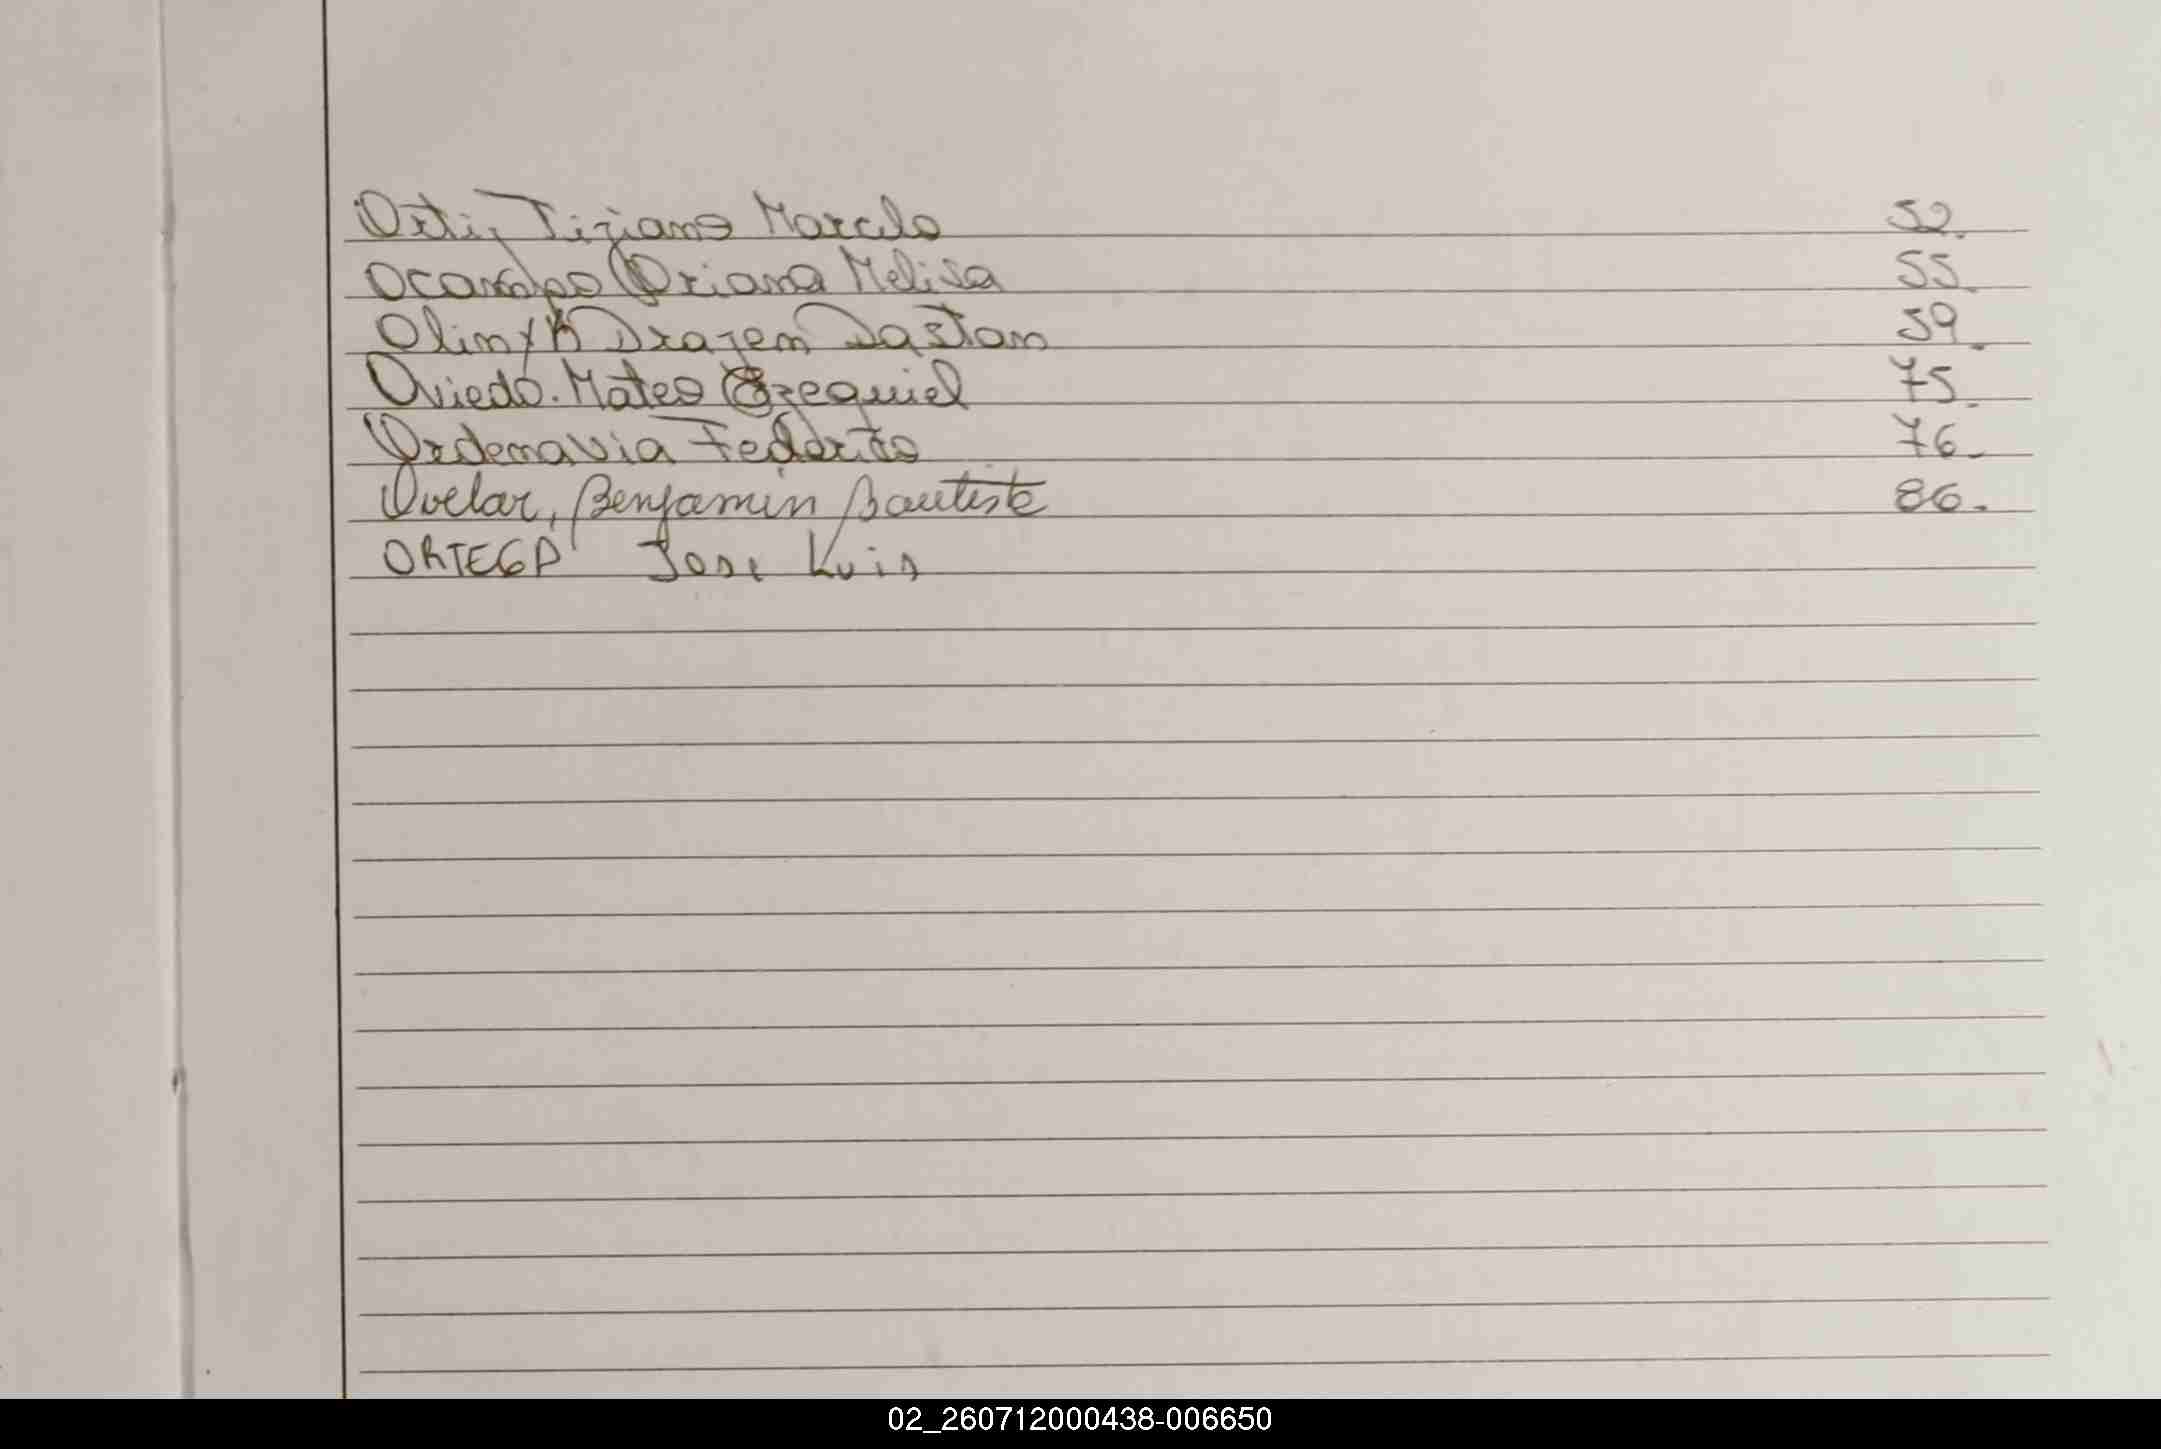 Ortiz Tiziano Marcelo 52.
Ocampo Oriana Melisa 55.
Olinyk Drazen Dastan 59.
Oviedo. Mateo Ezequiel 75.
Ordenavia Federico 76.
Ovelar, Benjamin Bautista 86.
ORTEGA Jose Luis
02_260712000438-006650